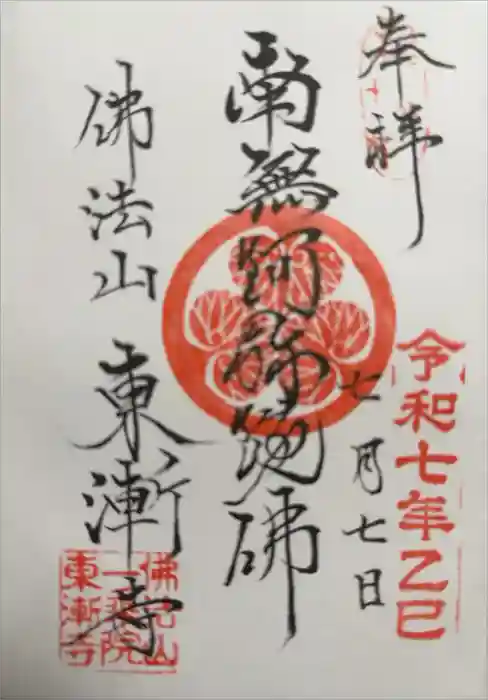 奉拝
令和七年乙巳
七月七日
南無阿弥陀佛
佛法山
東漸寺
佛法山
一乗院
東漸寺